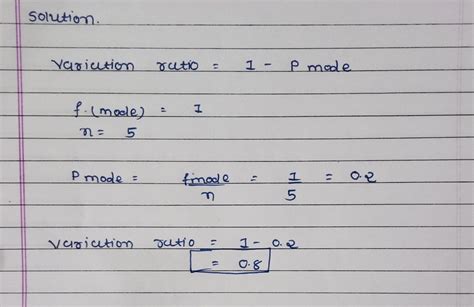 Solution.
Variation ratio = 1 - P mode
f.(mode) = 1
n = 5
P mode = fmode/n = 1/5 = 0.2
Variation ratio = 1 - 0.2
= 0.8